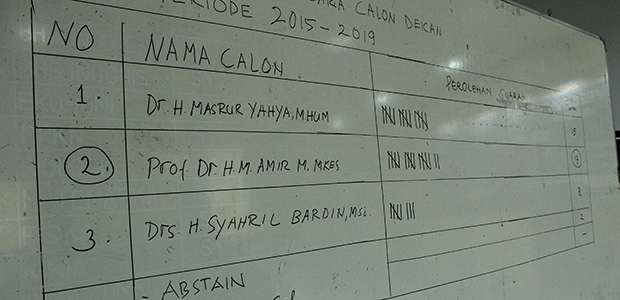 CALON DEKAN
PERIODE 2015-2019
NO NAMA CALON PEROLEHAN SUARA
1. Dr. H. MASRUR YAHYA, MHUM
2. Prof. Dr. H. M. AMIR M. MKES
3. Drs. H. SYAHRIL BARDIN, MSi. 8
2
- ABSTAIN